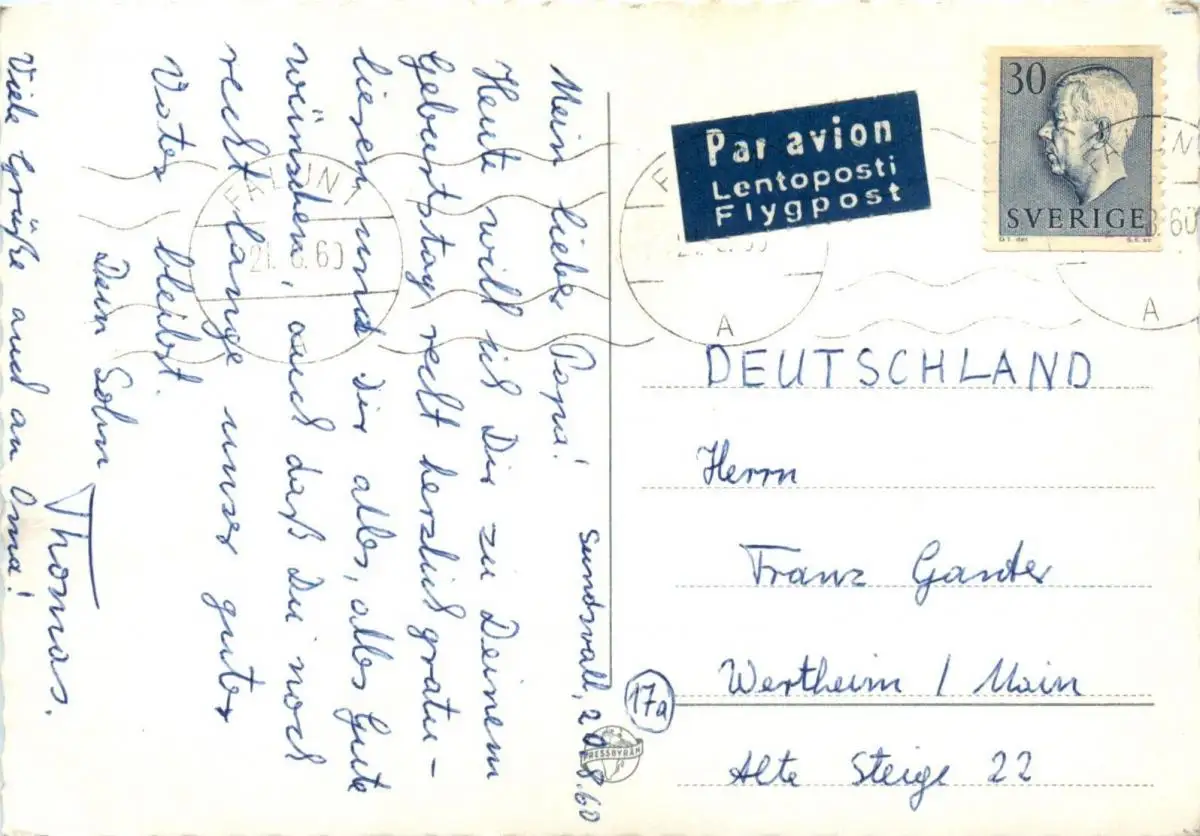 Sundsvall, 20.8.60
Mein lieber Papa!
Heute will ich Dir zu Deinem
Geburtstag recht herzlich gratu-
lieren und Dir alles, alles Gute
wünschen, auch daß Du noch
recht lange unser guter
Vater bleibst.
Dein Sohn
Thomas.
Viele Grüße auch an Oma!
Par avion
Lentoposti
Flygpost
30
SVERIGE
FALUN 1
21.8.60
A
A
DEUTSCHLAND
Herrn
Franz Ganter
Wertheim / Main
17a
Alte Steige 22
PRESSBYRÅN